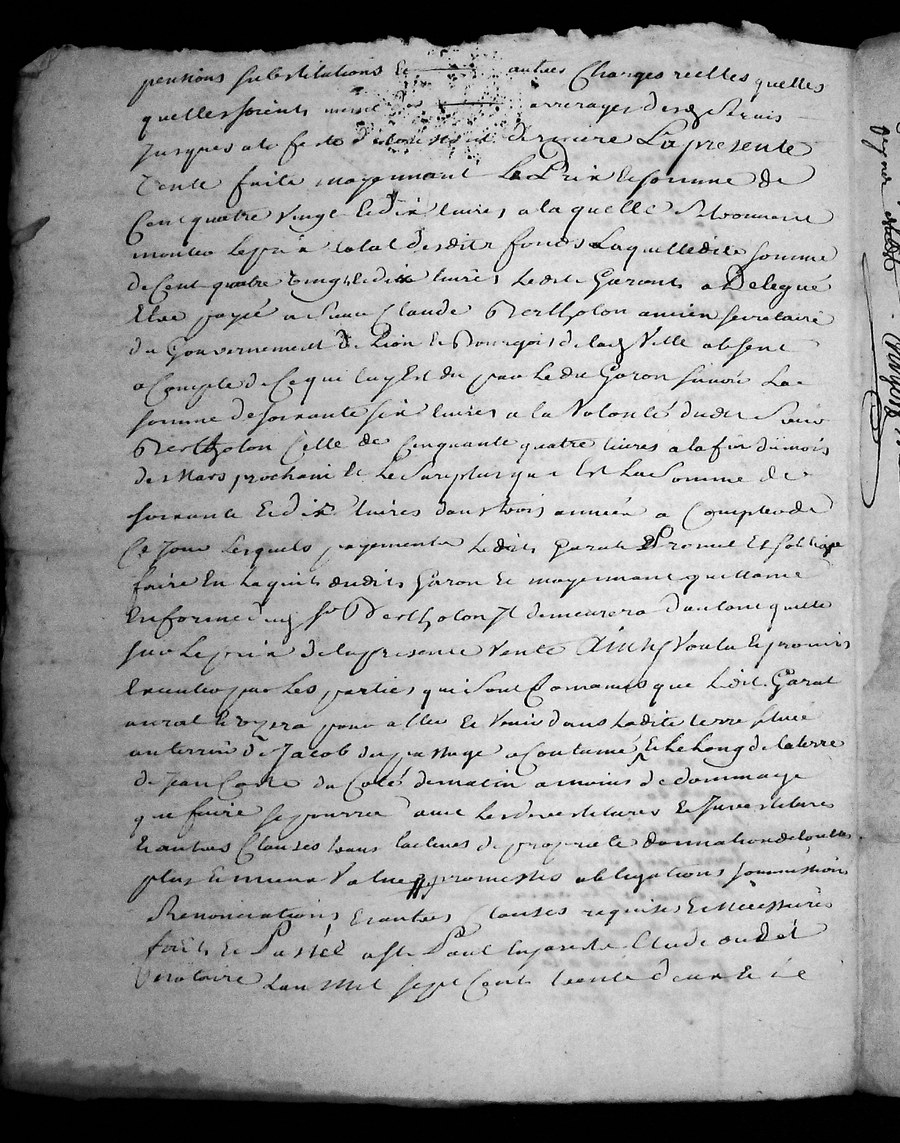 pensions substitutions Et autres Charges reelles quelles
quelles soient mesme des arrerages desd Servis
Jusques a la feste de dernière La presente
Vente faite moyennant Le Prix Et somme de
Cent quatre vingt Et dix livres a laquelle
monter le prix total desdits fonds Laquelle dite somme
de Cent quatre vingt Et dix livres Ledit Garant a Delegué
Etre payée a Sieur Claude Bertholon ancien Secretaire
du Gouvernement de Lion Et Bourgeois de lad Ville absent
a Compte de Ce qui luy Est du par Ledit Garon savoir La
somme de soixante six livres a la Volonté dudit Sieur
Bertholon Celle de Cinquante quatre livres a la fin du mois
de Mars prochain Et Le Surplus que Est La Somme de
soixante Et dix livres dans trois années a Compter de
Ce Jour Lesquels payements Ledit Garat Promet Et soblige
faire En Lacquit dudit Garon Et moyennant quittance
En forme dud Sr Bertholon Il demeurera dautant quitte
sur Le prix de la presente Vente Ainsy Voulu Et promis
Executer par Les parties qui Sont Convenues que Ledit Garat
aura Et pour aller Et Venir dans Ladite terre située
au terroir de Jacob du passage acoutumé Et Le Long de la terre
de Jean du Coté de matin a moins de dommage
que faire se pourra avec Les devestitures Et Investitures
Et autres Clauses translatives de proprieté donnation de toutte
plus Et mieux Value promesses obligations soumissions
Renonciations Et autres Clauses requises Et necessaires
fait Et Passé a St Paul Etude dud
Notaire Lan Mil sept Cent trente deux Et Le